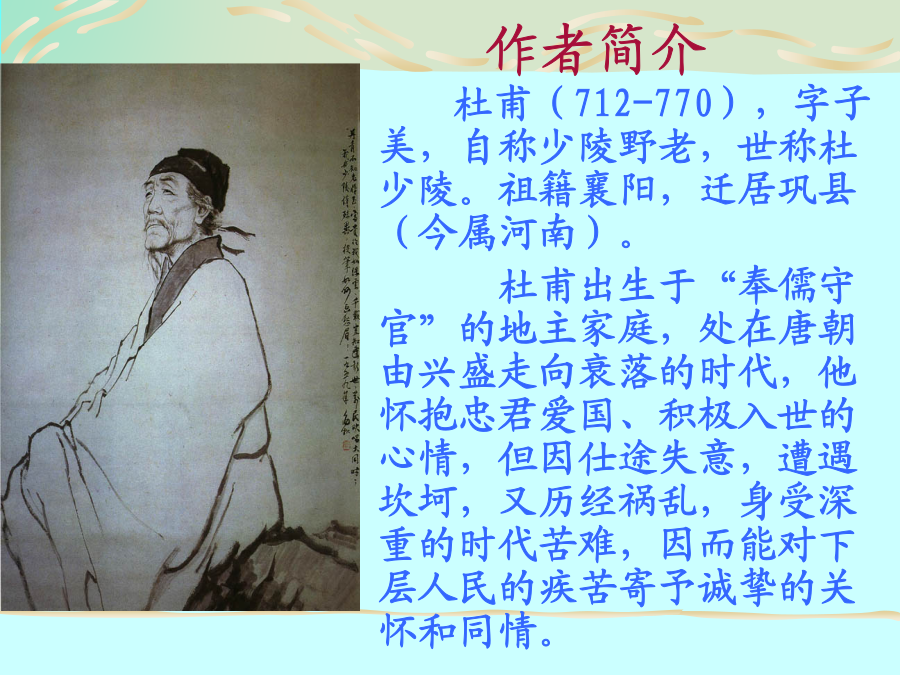 作者简介
杜甫（712-770），字子
美，自称少陵野老，世称杜
少陵。祖籍襄阳，迁居巩县
（今属河南）。
杜甫出生于“奉儒守
官”的地主家庭，处在唐朝
由兴盛走向衰落的时代，他
怀抱忠君爱国、积极入世的
心情，但因仕途失意，遭遇
坎坷，又历经祸乱，身受深
重的时代苦难，因而能对下
层人民的疾苦寄予诚挚的关
怀和同情。